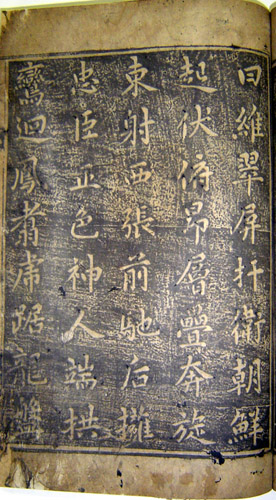 曰維翠屏扞衛朝鮮
起伏俯昻層疊奔旋
東射西張前馳后擁
忠臣正色神人端拱
鸞迴鳳翥虎踞龍盤